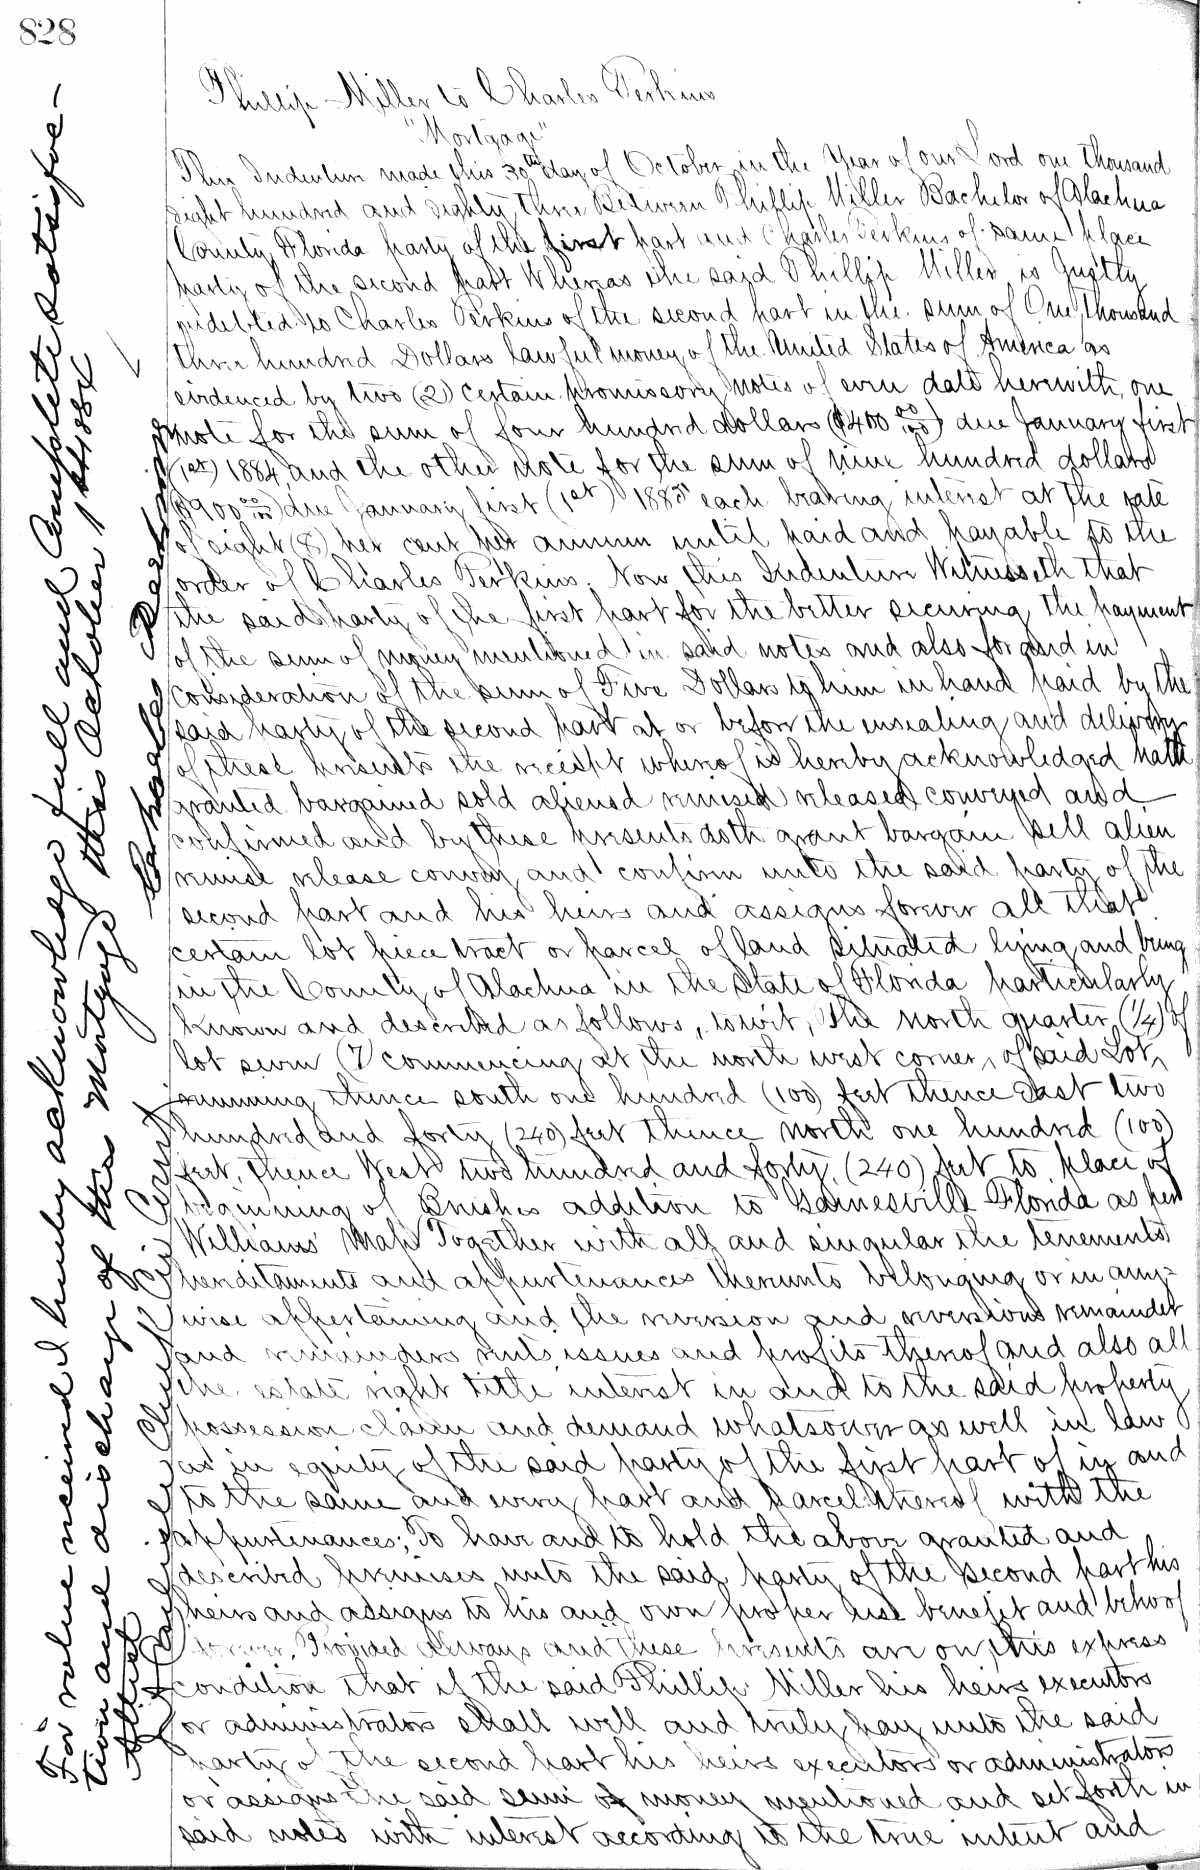 828
Phillip Miller to Charles Perkins
"Mortgage"
This Indenture made this 30th day of October in the Year of our Lord one Thousand
eight hundred and Eighty Three Between Phillip Miller Bachelor of Alachua
County Florida party of the first part and Charles Perkins of same place
party of the second part Whereas the said Phillip Miller is Justly
indebted to Charles Perkins of the second part in the sum of One Thousand
three hundred Dollars lawful money of the United States of America as
evidenced by two (2) certain promissory notes of even date herewith, one
note for the sum of four hundred dollars ($400 00/100) due January first
(1st) 1884, and the other note for the sum of nine hundred dollars
($900 00/100) due January first (1st) 1885 each bearing interest at the rate
of eight (8) per cent per annum until paid and payable to the
order of Charles Perkins. Now this Indenture Witnesseth that
the said party of the first part for the better securing the payment
of the sum of money mentioned in said notes and also for and in
consideration of the sum of Five Dollars to him in hand paid by the
said party of the second part at or before the ensealing and delivery
of these presents the receipt whereof is hereby acknowledged hath
granted bargained sold aliened remised released conveyed and
confirmed and by these presents doth grant bargain sell alien
remise release convey and confirm unto the said party of the
second part and his heirs and assigns forever all that
certain lot piece tract or parcel of land situated lying and being
in the County of Alachua in the State of Florida particularly
known and described as follows, to wit, The North quarter (1/4) of
lot seven (7) commencing at the north west corner, of said Lot,
running thence south one hundred (100) feet thence East two
hundred and forty (240) feet thence North one hundred (100)
feet, thence West two hundred and forty (240) feet to place of
beginning of Brushes addition to Gainesville Florida as per
Williams' Map Together with all and singular the tenements
hereditaments and appurtenances thereunto belonging or in any=
wise appertaining and the reversion and reversions remainder
and remainders rents issues and profits thereof and also all
the estate right title interest in and to the said property
possession claim and demand whatsoever as well in law
as in equity of the said party of the first part of in and
to the same and every part and parcel thereof with the
appurtenances; To have and to hold the above granted and
described premises unto the said party of the second part his
heirs and assigns to his and own proper use benefit and behoof
forever. Provided Always and these presents are on this express
condition that if the said Phillip Miller his heirs executors
or administrators shall well and truly pay unto the said
party of the second part his heirs executors or administrators
or assigns the said sum of money mentioned and set forth in
said notes with interest according to the true intent and
For value received I hereby acknowledge full and Complete satisfac-
tion and discharge of this Mortgage this October 1st 1884
Charles Perkins
Attest
Clerk Cir Court